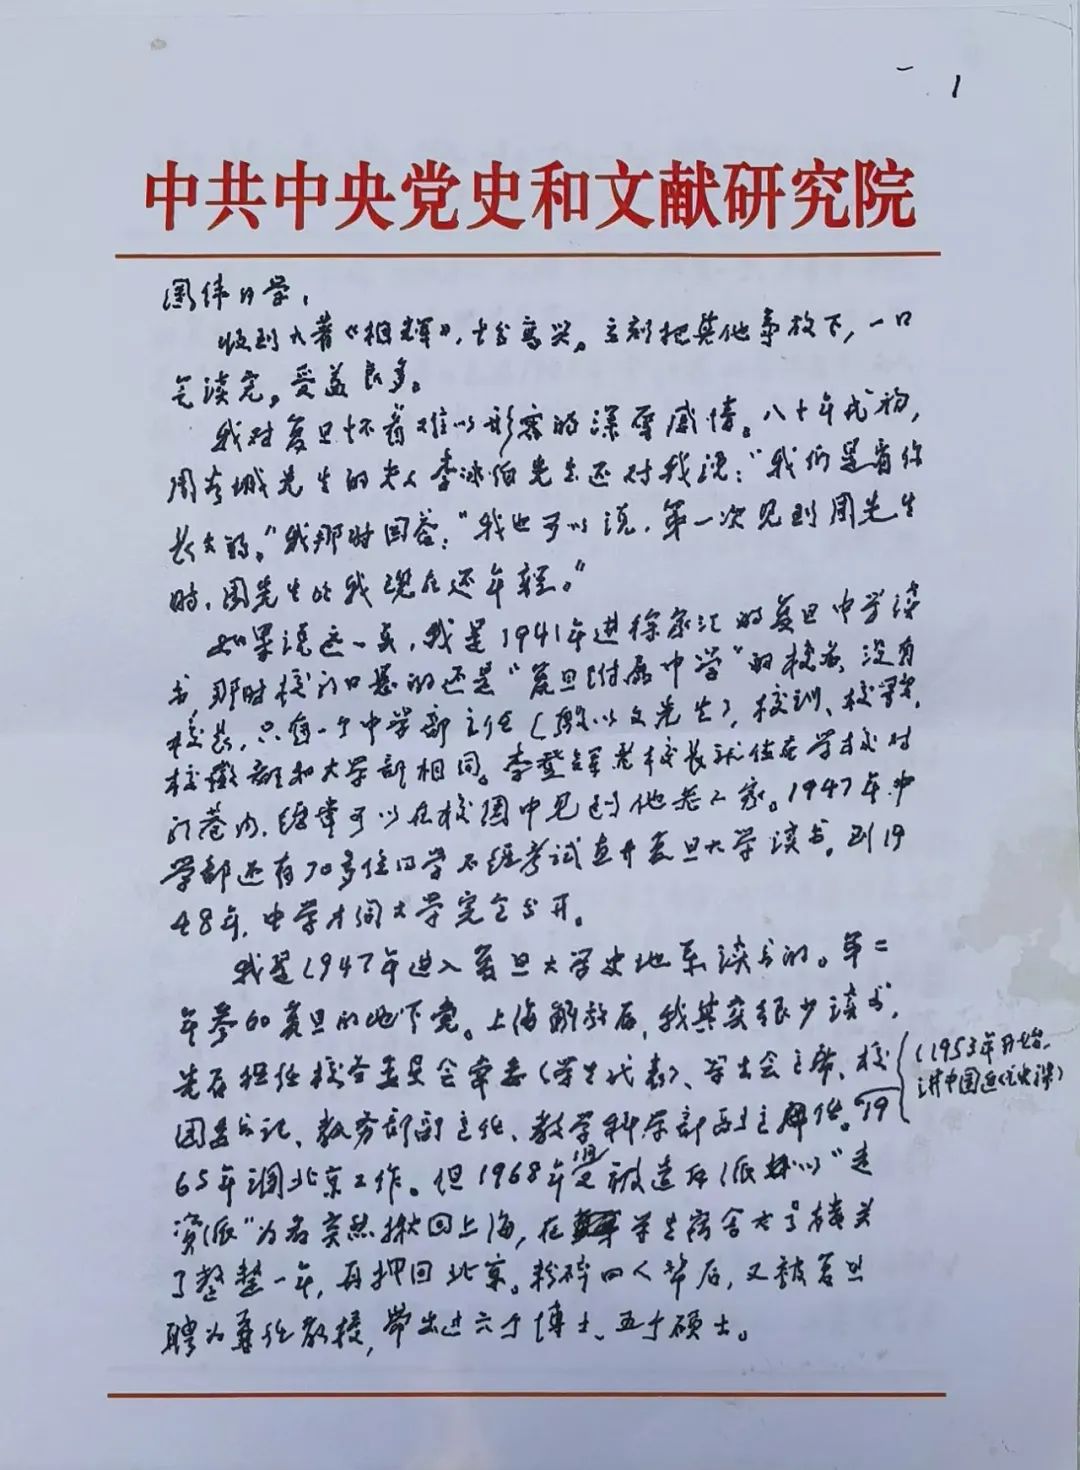 一 1
中共中央党史和文献研究院
国伟同学，
收到大著《相辉》，十分高兴。立刻把其他事放下，一口
气读完。受益良多。
我对复旦怀着难以形容的深厚感情。八十年代初，
周谷城先生的夫人李冰伯先生还对我说：“我们是看你
长大的。”我那时回答：“我也可以说，第一次见到周先生
时，周先生比我现在还年轻。”
如果说远一点，我是1941年进徐家汇的复旦中学读
书，那时校门口悬的还是“复旦附属中学”的校名，没有
校长，只有一个中学部主任（殷以文先生），校训、校歌、
校徽都和大学部相同。李登辉老校长就住在学校对
门巷内，经常可以在校园中见到他老人家。1947年中
学部还有70多位同学不经考试直升复旦大学读书。到19
48年，中学才同大学完全分开。
我是1947年进入复旦大学史地系读书的。第二
年参加复旦的地下党。上海解放后，我其实很少读书，
先后担任校务委员会常委（学生代表）、学生会主席、校
团委书记、教务部副主任、教学科学部副主任。19
（1953年开始，
讲中国近代史课）
65年调北京工作。但1968年又被造反派以“走
资派”为名突然揪回上海，在学生宿舍六号楼关
了整整一年，再押回北京。粉碎四人帮后，又被复旦
聘为兼任教授，带出过六个博士、五个硕士。